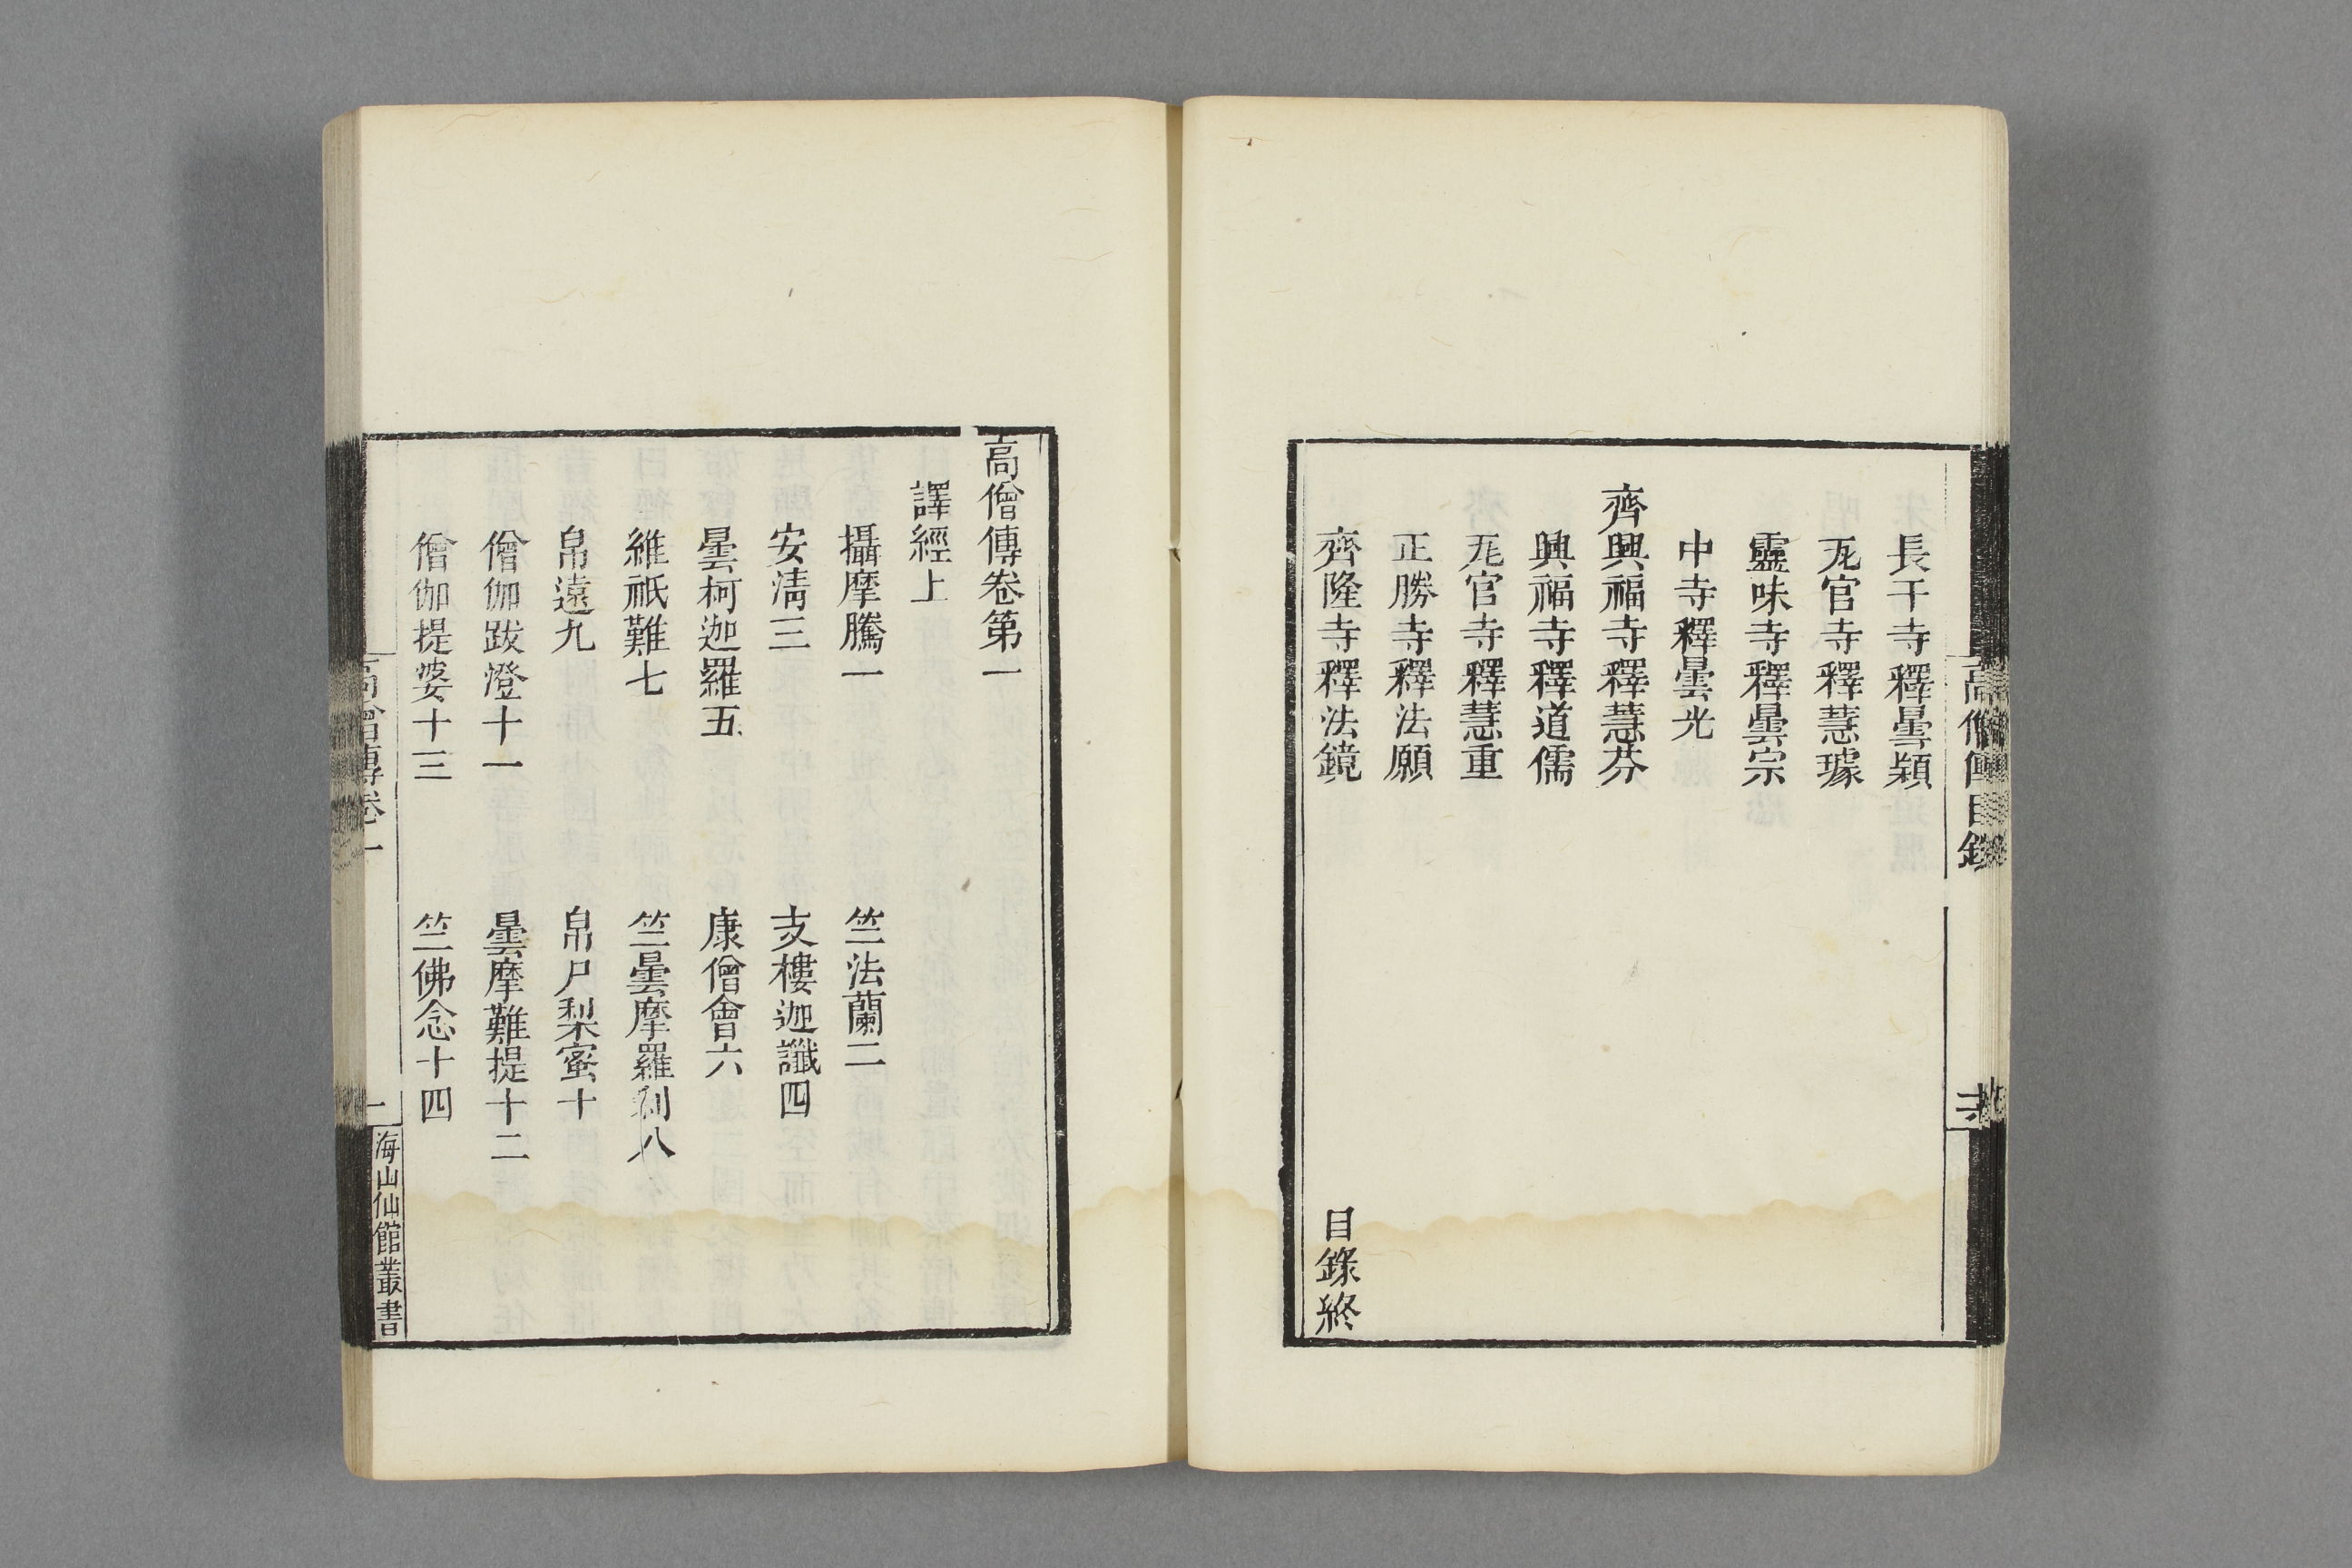 長干寺釋曇穎
瓦官寺釋慧璩
靈味寺釋曇宗
中寺釋曇光
齊興福寺釋慧芬
興福寺釋道儒
瓦官寺釋慧重
正勝寺釋法願
齊隆寺釋法鏡
目錄終
高僧傳目錄
高僧傳卷第一
譯經上
攝摩騰一
竺法蘭二
安清三
支樓迦讖四
曇柯迦羅五
康僧會六
維祇難七
竺曇摩羅剎八
帛遠九
帛尸梨蜜十
僧伽跋澄十一
曇摩難提十二
僧伽提婆十三
竺佛念十四
高僧傳卷一
一
海山仙館叢書